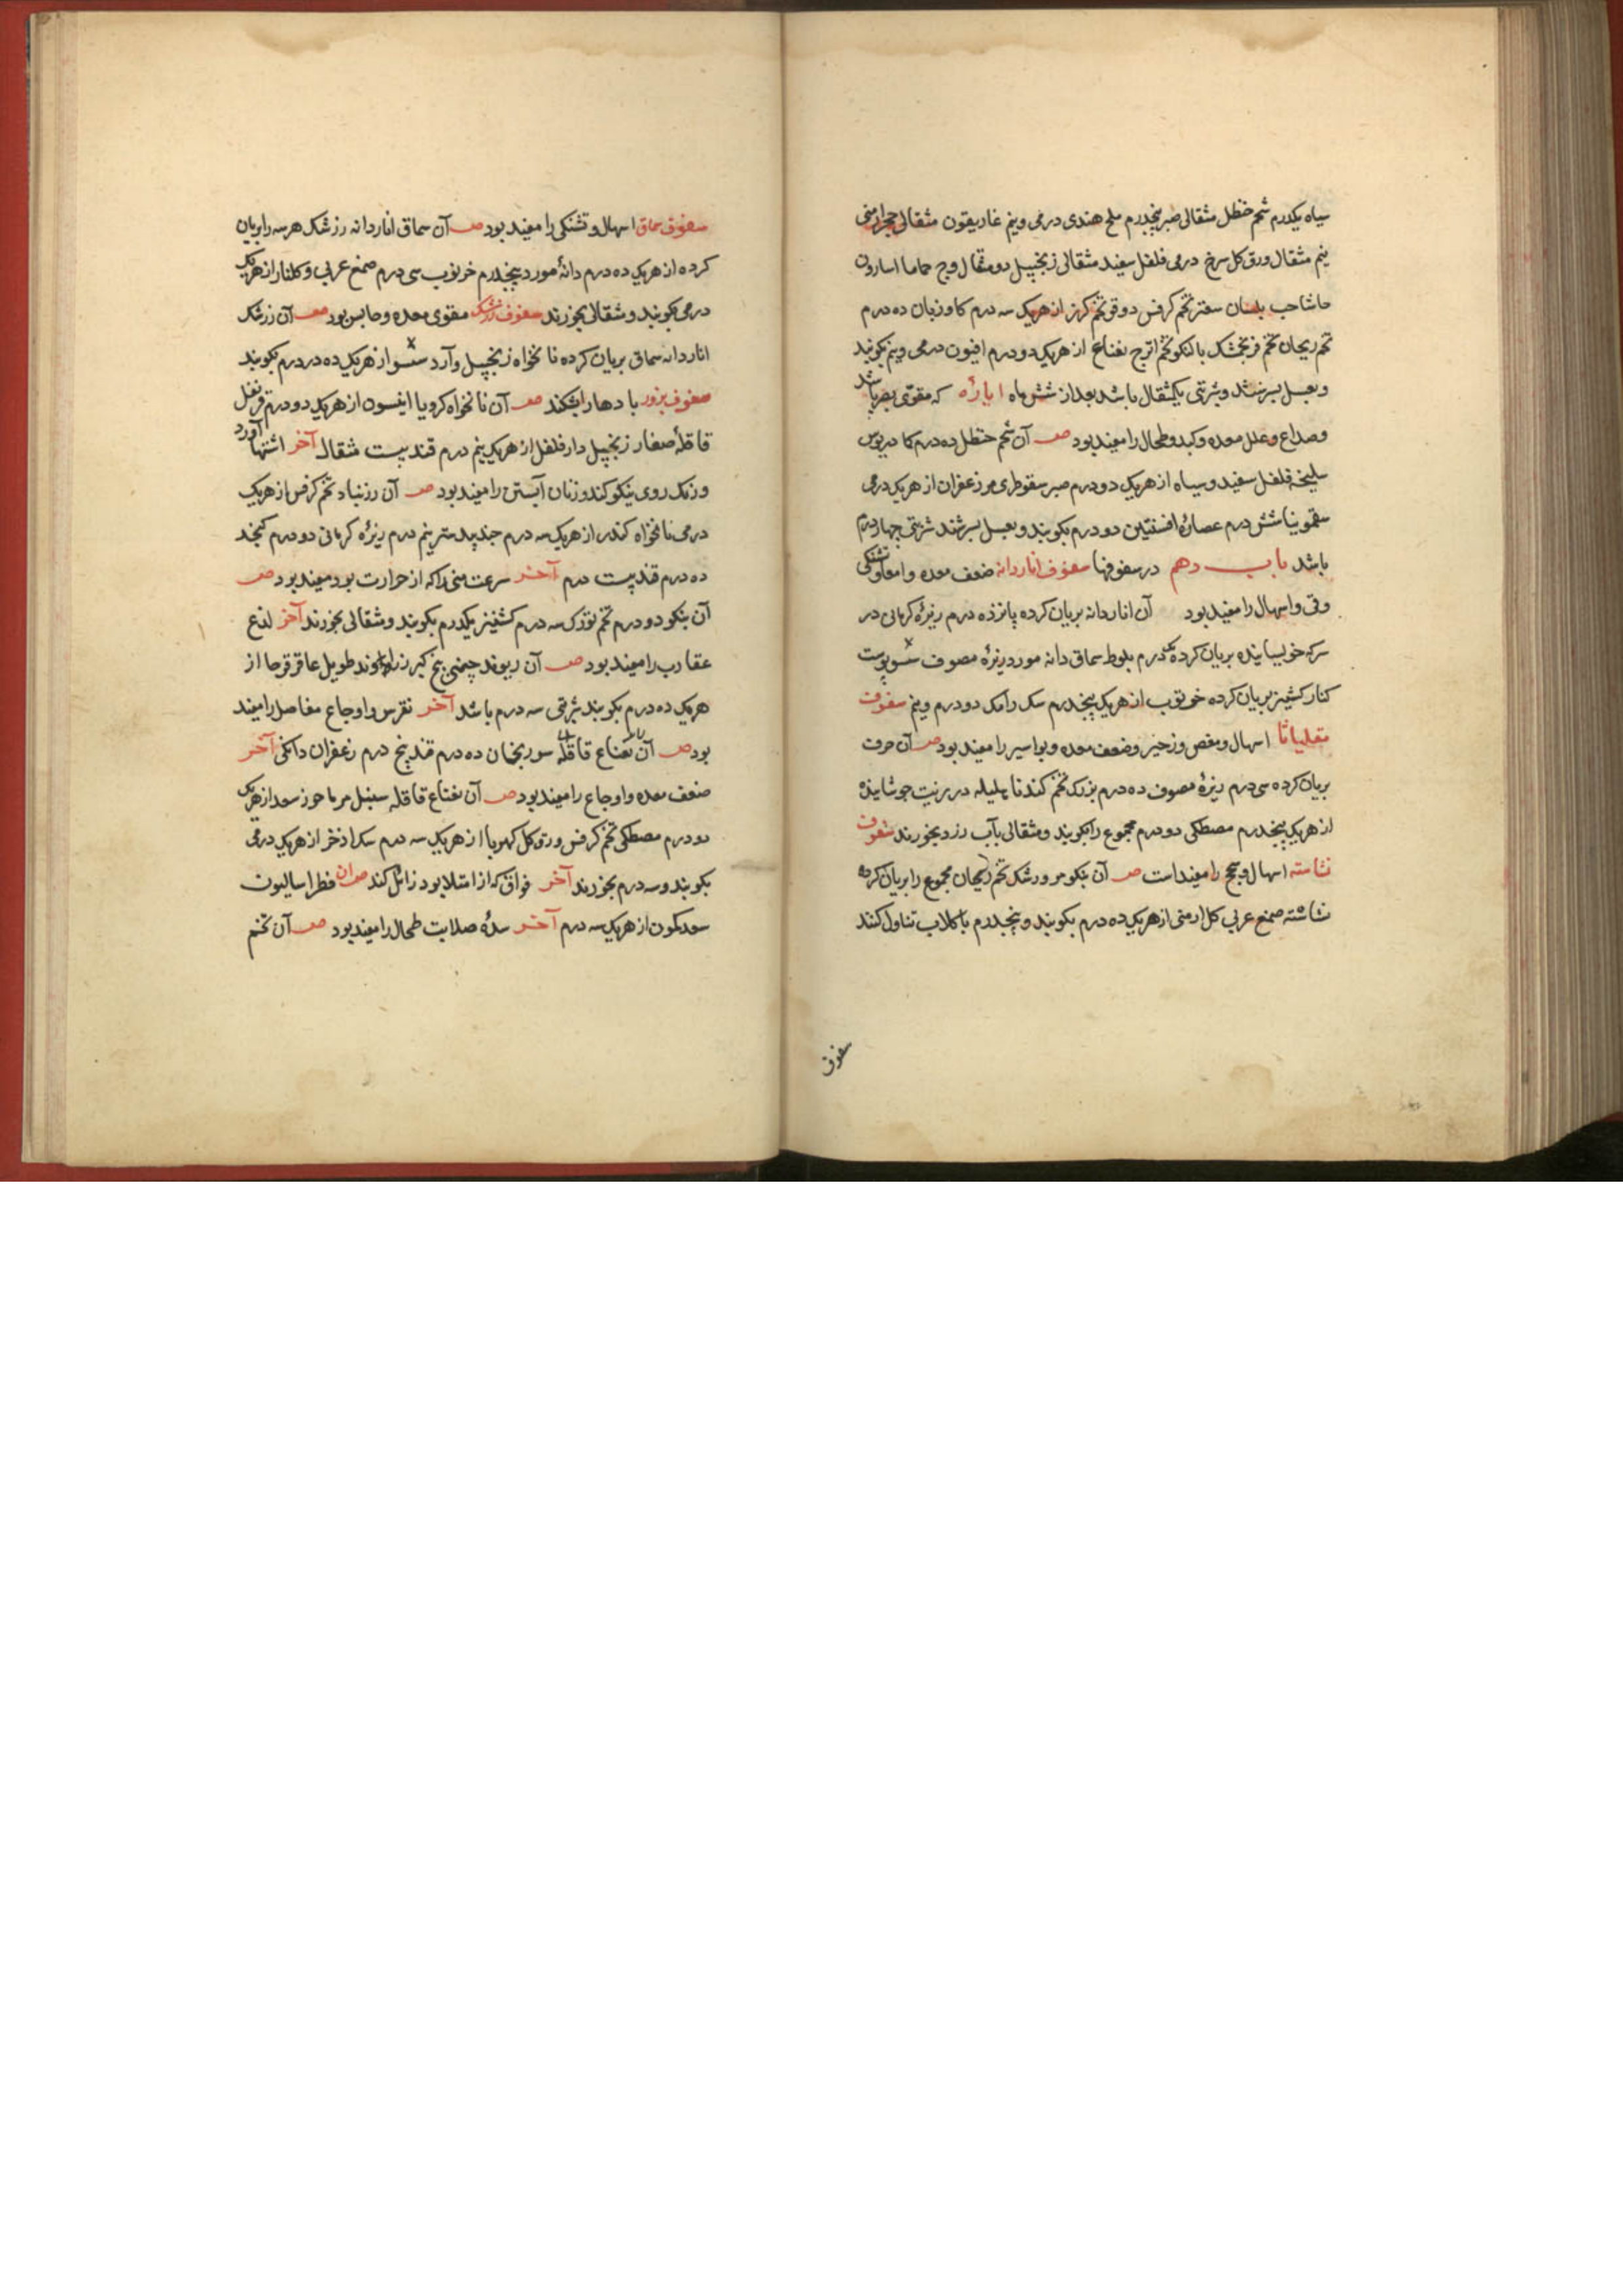 سیاه یکدرم شحم حنظل مثقالی صبر پنجدرم ملح هندی درمی و نیم غاریقون مثقالی حجر ارمنی
نیم مثقال ورق کل سرخ درمی فلفل سفید مثقالی زنجبیل دو مثقال وج حماما اسارون
حاشا حب بلسان سعتر تخم کرفس دوقو تخم کزر از هریک سه درم کاوزبان ده درم
تخم ریحان تخم فرنجمشک بالنکو تخم اترج نعناع از هریک دو درم افیون درمی و نیم بکوبند
و بعسل بسرشند و شربتی یکمثقال باشد بعد از شش ماه ایارۀ که مقوی بصر باشد
و صداع و علل معده و کبد و طحال را مفید بود صـ آن شحم حنظل ده درم کمادریوس
سلیخه فلفل سفید و سیاه از هریک دو درم صبر سقوطری مر زعفران از هریک درمی
سقمونیا شش درم عصارۀ افسنتین دو درم بکوبند و بعسل بسرشند شربتی چهار درم
باشد باب دهم در سفوفها سفوف اناردانه ضعف معده و امعا و تشنکی
و قی و اسهال را مفید بود آن اناردانه بریان کرده پانزده درم زیرۀ کرمانی در
سرکه خویسانیده بریان کرده درم بلوط سماق دانه مورد زیرۀ مصوف پوست
کنار کشنیز بریان کرده خرنوب از هریک پنجدرم سک رامک دو درم و نیم سفوف
مقلیاثا اسهال و مغص و زحیر و ضعف معده و بواسیر را مفید بود صـ آن حرف
بریان کرده سی درم زیرۀ مصوف ده درم بزرک تخم کندنا هلیله در زیت جوشانیده
از هریک پنجدرم مصطکی دو درم مجموع را بکوبند و مثقالی بآب رزد بخورند سفوف
نشاسته اسهال و سحج را مفید است صـ آن بنکو مرو رشک تخم ریحان مجموع را بریان کرده
نشاسته صمغ عربی کل ارمنی از هریک ده درم بکوبند و پنجدرم با کلاب تناول کنند
سفوف
سفوف سماق اسهال و تشنکی را مفید بود صـ آن سماق اناردانه زرشک هر سه را بریان
کرده از هریک ده درم دانۀ مورد پنجدرم خرنوب سی درم صمغ عربی و کلنار از هریک
درمی بکوبند و مثقالی بخورند سفوف زرشک مقوی معده و حابس بود صـ آن زرشک
اناردانه سماق بریان کرده نانخواه زنجبیل و آرد از هریک ده درم بکوبند
سفوف بزور بادها را بشکند صـ آن نانخواه کرویا انیسون از هریک دو درم قرنفل
قاقلۀ صغار زنجبیل دارفلفل از هریک نیم درم قند بیست مثقال آخر اشتها آورد
و رنک روی نیکو کند و زنان آبستن را مفید بود صـ آن رزنباد تخم کرفس از هریک
درمی نانخواه کندر از هریک سه درم جندبیدستر نیم درم زیرۀ کرمانی دو درم کنجد
ده درم قند بیست درم آخر سرعت منی را که از حرارت بود مفید بود صـ
آن بنکو دو درم تخم تورک سه درم کشنیز یکدرم بکوبند و مثقالی بخورند آخر لدغ
عقارب را مفید بود صـ آن ریوند چینی بیخ کبر زراوند طویل عاقرقرحا از
هریک ده درم بکوبند شربتی سه درم باشد آخر نقرس و اوجاع مفاصل را مفید
بود صـ آن نعناع قاقله سورنجان ده درم قند پنج درم زعفران دانکی آخر
ضعف معده و اوجاع را مفید بود صـ آن نعناع قاقله سنبل مرماحوز سعد از هریک
دو درم مصطکی تخم کرفس ورق کل کهربا از هریک سه درم سک اذخر از هریک درمی
بکوبند و سه درم بخورند آخر فواق که از امتلا بود زائل کند صـ آن فطراسالیون
سعد کمون از هریک سه درم آخر سدۀ صلابت طحال را مفید بود صـ آن تخم